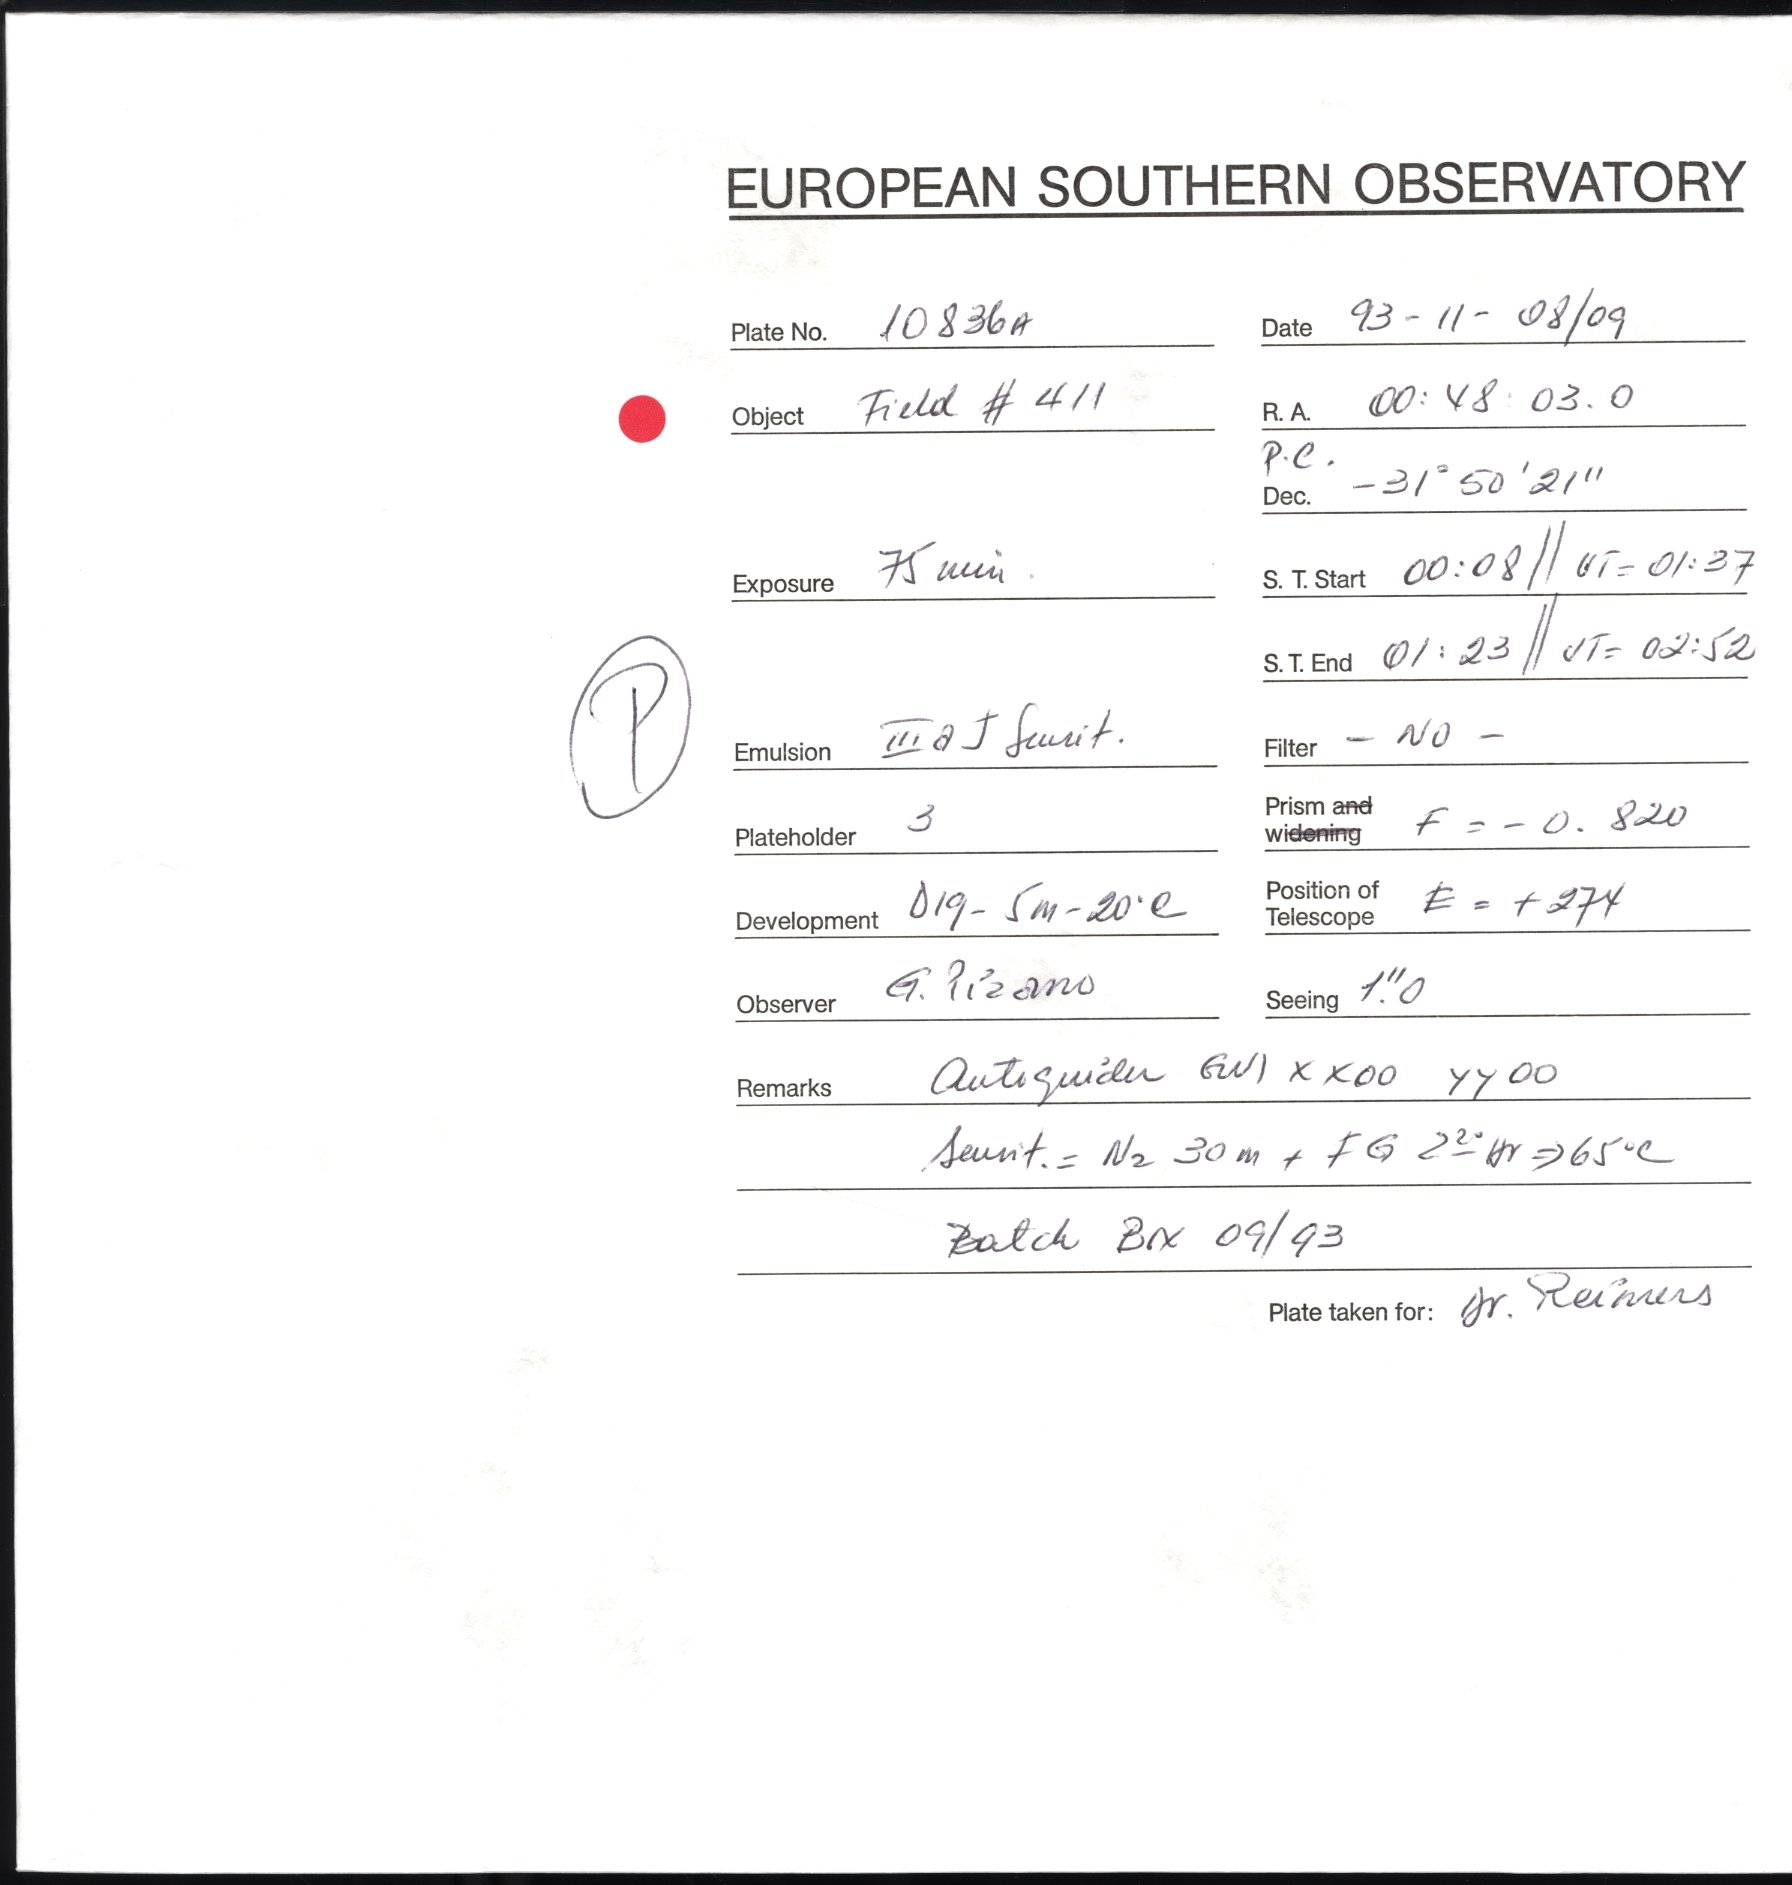 EUROPEAN SOUTHERN OBSERVATORY
Plate No. 10836A
Date 93-11-08/09
Object Field # 411
R. A. 00:48:03.0
P.C.
Dec. -31° 50' 21"
Exposure 75 min.
S. T. Start 00:08 // UT= 01:37
S. T. End 01:23 // UT= 02:52
P
Emulsion III a J Sensit.
Filter - NO -
Plateholder 3
Prism and widening F = - 0.820
Development D19- 5m-20°C
Position of Telescope E = + 274
Observer G. Pizarro
Seeing 1."0
Remarks Autoguider XX00 YY00
Sensit. = N2 30m + FG Hr ⇒ 65°C
Batch 09/93
Plate taken for: Dr. Reimers